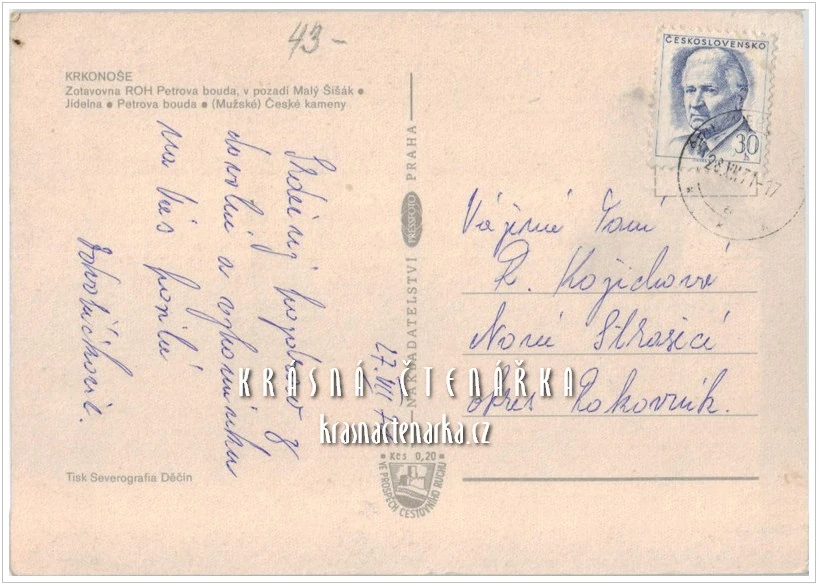 43-
KRKONOŠE
Zotavovna ROH Petrova bouda, v pozadí Malý Šišák •
Jídelna • Petrova bouda • (Mužské) České kameny
Srdečný pozdrav z
dovolené a vzpomínku
na Vás posílá
27. VII. 71
NAKLADATELSTVÍ PRESSFOTO PRAHA
Kčs 0,20
VE PROSPĚCH CESTOVNÍHO RUCHU
Tisk Severografia Děčín
ČESKOSLOVENSKO
30
h
28.VII.71-17
Vážená Paní
R. Kožichová
Nové Strašecí
okres Rakovník.
KRÁSNÁ ČTENÁŘKA
krasnactenarka.cz